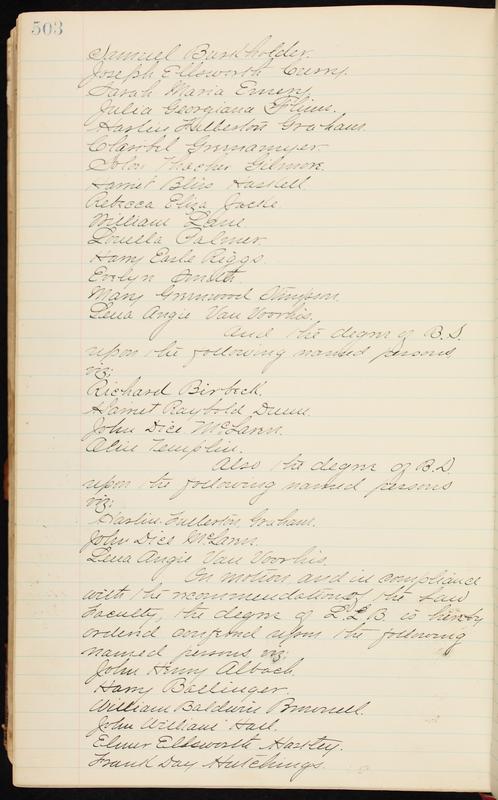 503
Samuel Burkholder.
Joseph Ellsworth Curry.
Sarah Maria Emery
Julia Georgiana Flinn.
Harlin Fulberton Graham.
Gunnamyer
John Thacher Gilmore.
Harriet Bliss Haskell
Rebecca Eliza Jackle.
William Lane
Louella Palmer.
Harry Earle Riggs.
Evelyn Smith.
Mary Grunwood Stimpson.
Lena Angie Van Voorhis.
And the degree of B.S.
upon the following named persons
viz:
Richard Birbeck.
Harriet Raybold Dunn.
John Dice McLaren.
Templin.
Also the degree of B.D.
upon the following named persons
viz:
Harlin Fullerton Graham.
John Dice McLaren.
Lena Angie Van Voorhis.
On motion and in compliance
with the recommendation of the Law
Faculty, the degree of L.L.B. is hereby
ordered conferred upon the following
named persons viz;
John Henry Albach.
Harry Ballinger.
William Baldwin Brownell.
John William Hall.
Elmer Ellsworth Hartley.
Frank Day Hutchings.